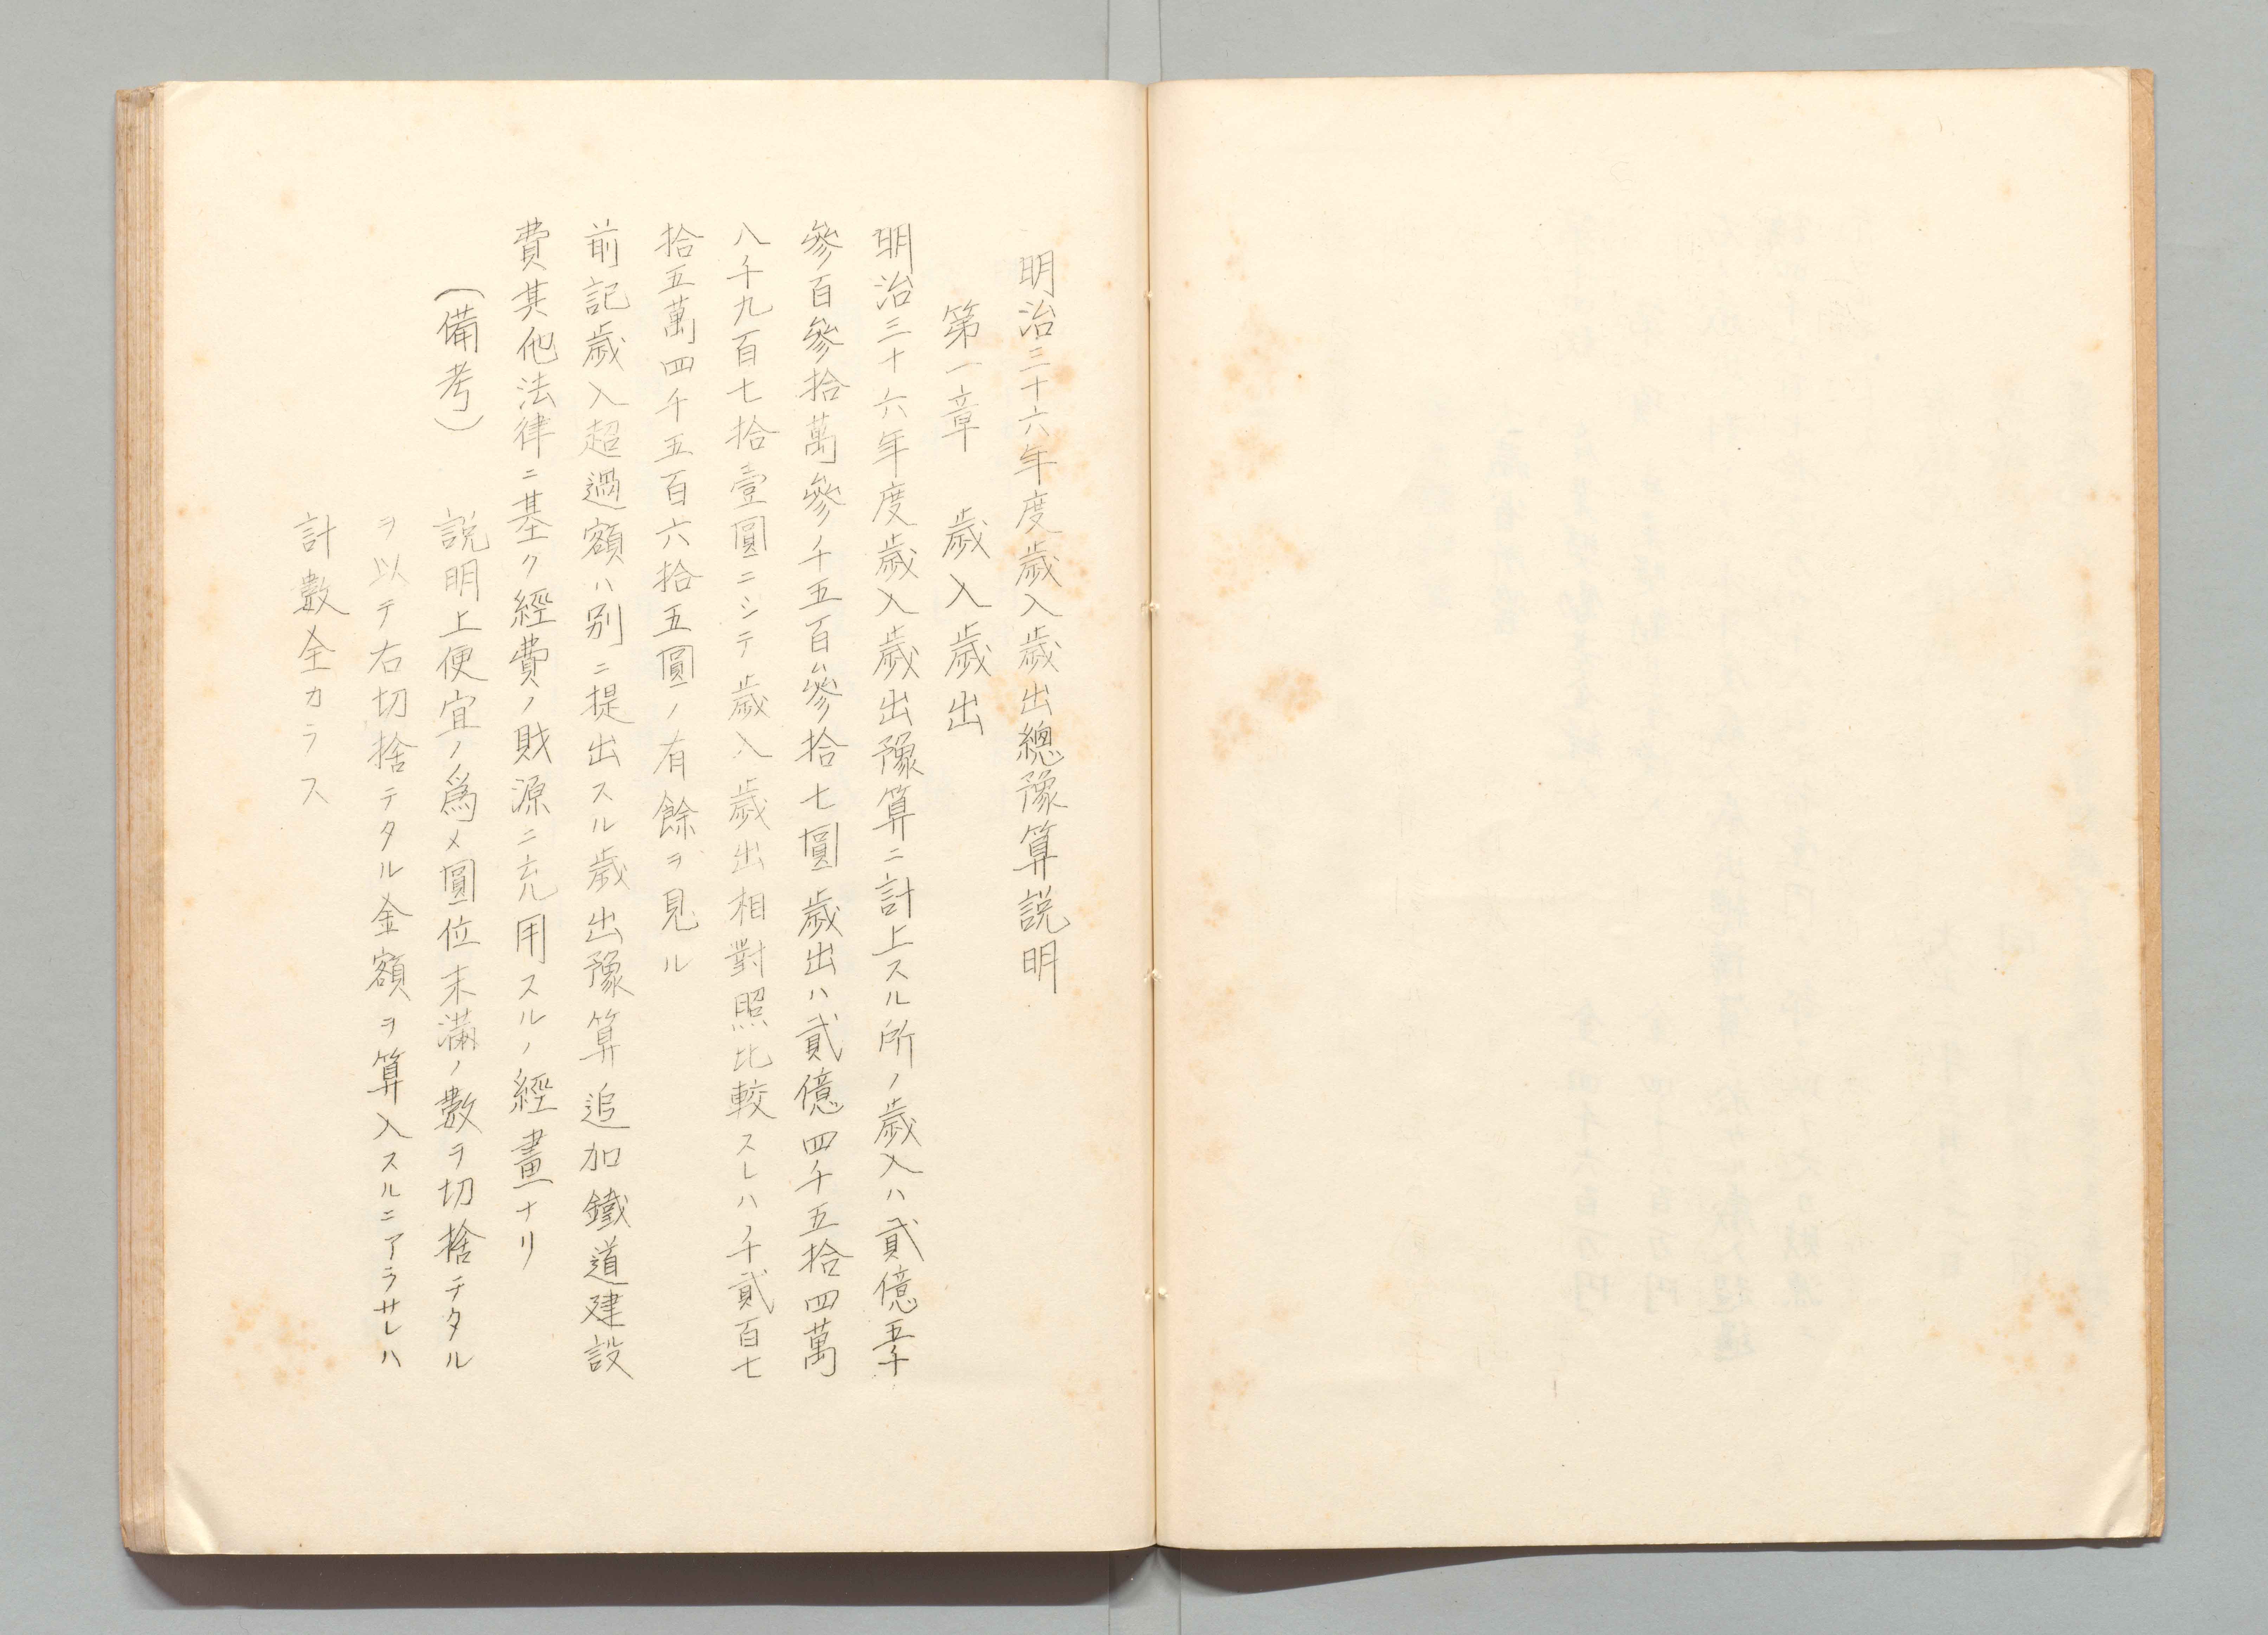 明治三十六年度歳入歳出總豫算説明
第一章　歳入歳出
明治三十六年度歳入歳出豫算ニ計上スル所ノ歳入ハ貳億五千
參百參拾萬參千五百參拾七圓歳出ハ貳億四千五拾四萬
八千九百七拾壹圓ニシテ歳入歳出相對照比較スレハ千貳百七
拾五萬四千五百六拾五圓ノ有餘ヲ見ル
前記歳入超過額ハ別ニ提出スル歳出豫算追加鐵道建設
費其他法律ニ基ク經費ノ財源ニ充用スルノ經畫ナリ
（備考）　説明上便宜ノ爲メ圓位未滿ノ數ヲ切捨テタル
ヲ以テ右切捨テタル金額ヲ算入スルニアラサレハ
計數全カラス